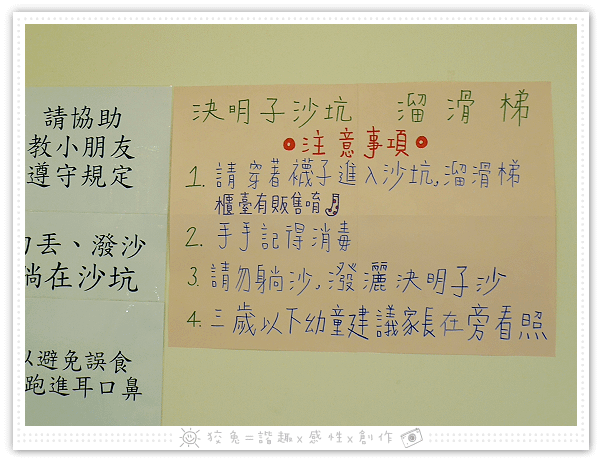 請協助
教小朋友
遵守規定
丟、潑沙
躺在沙坑
以避免誤食
跑進耳口鼻
決明子沙坑 溜滑梯
注意事項
1. 請穿著襪子進入沙坑,溜滑梯
櫃臺有販售唷
2. 手手記得消毒
3. 請勿躺沙,潑灑決明子沙
4. 三歲以下幼童建議家長在旁看照
狡兔=諧趣x感性x創作